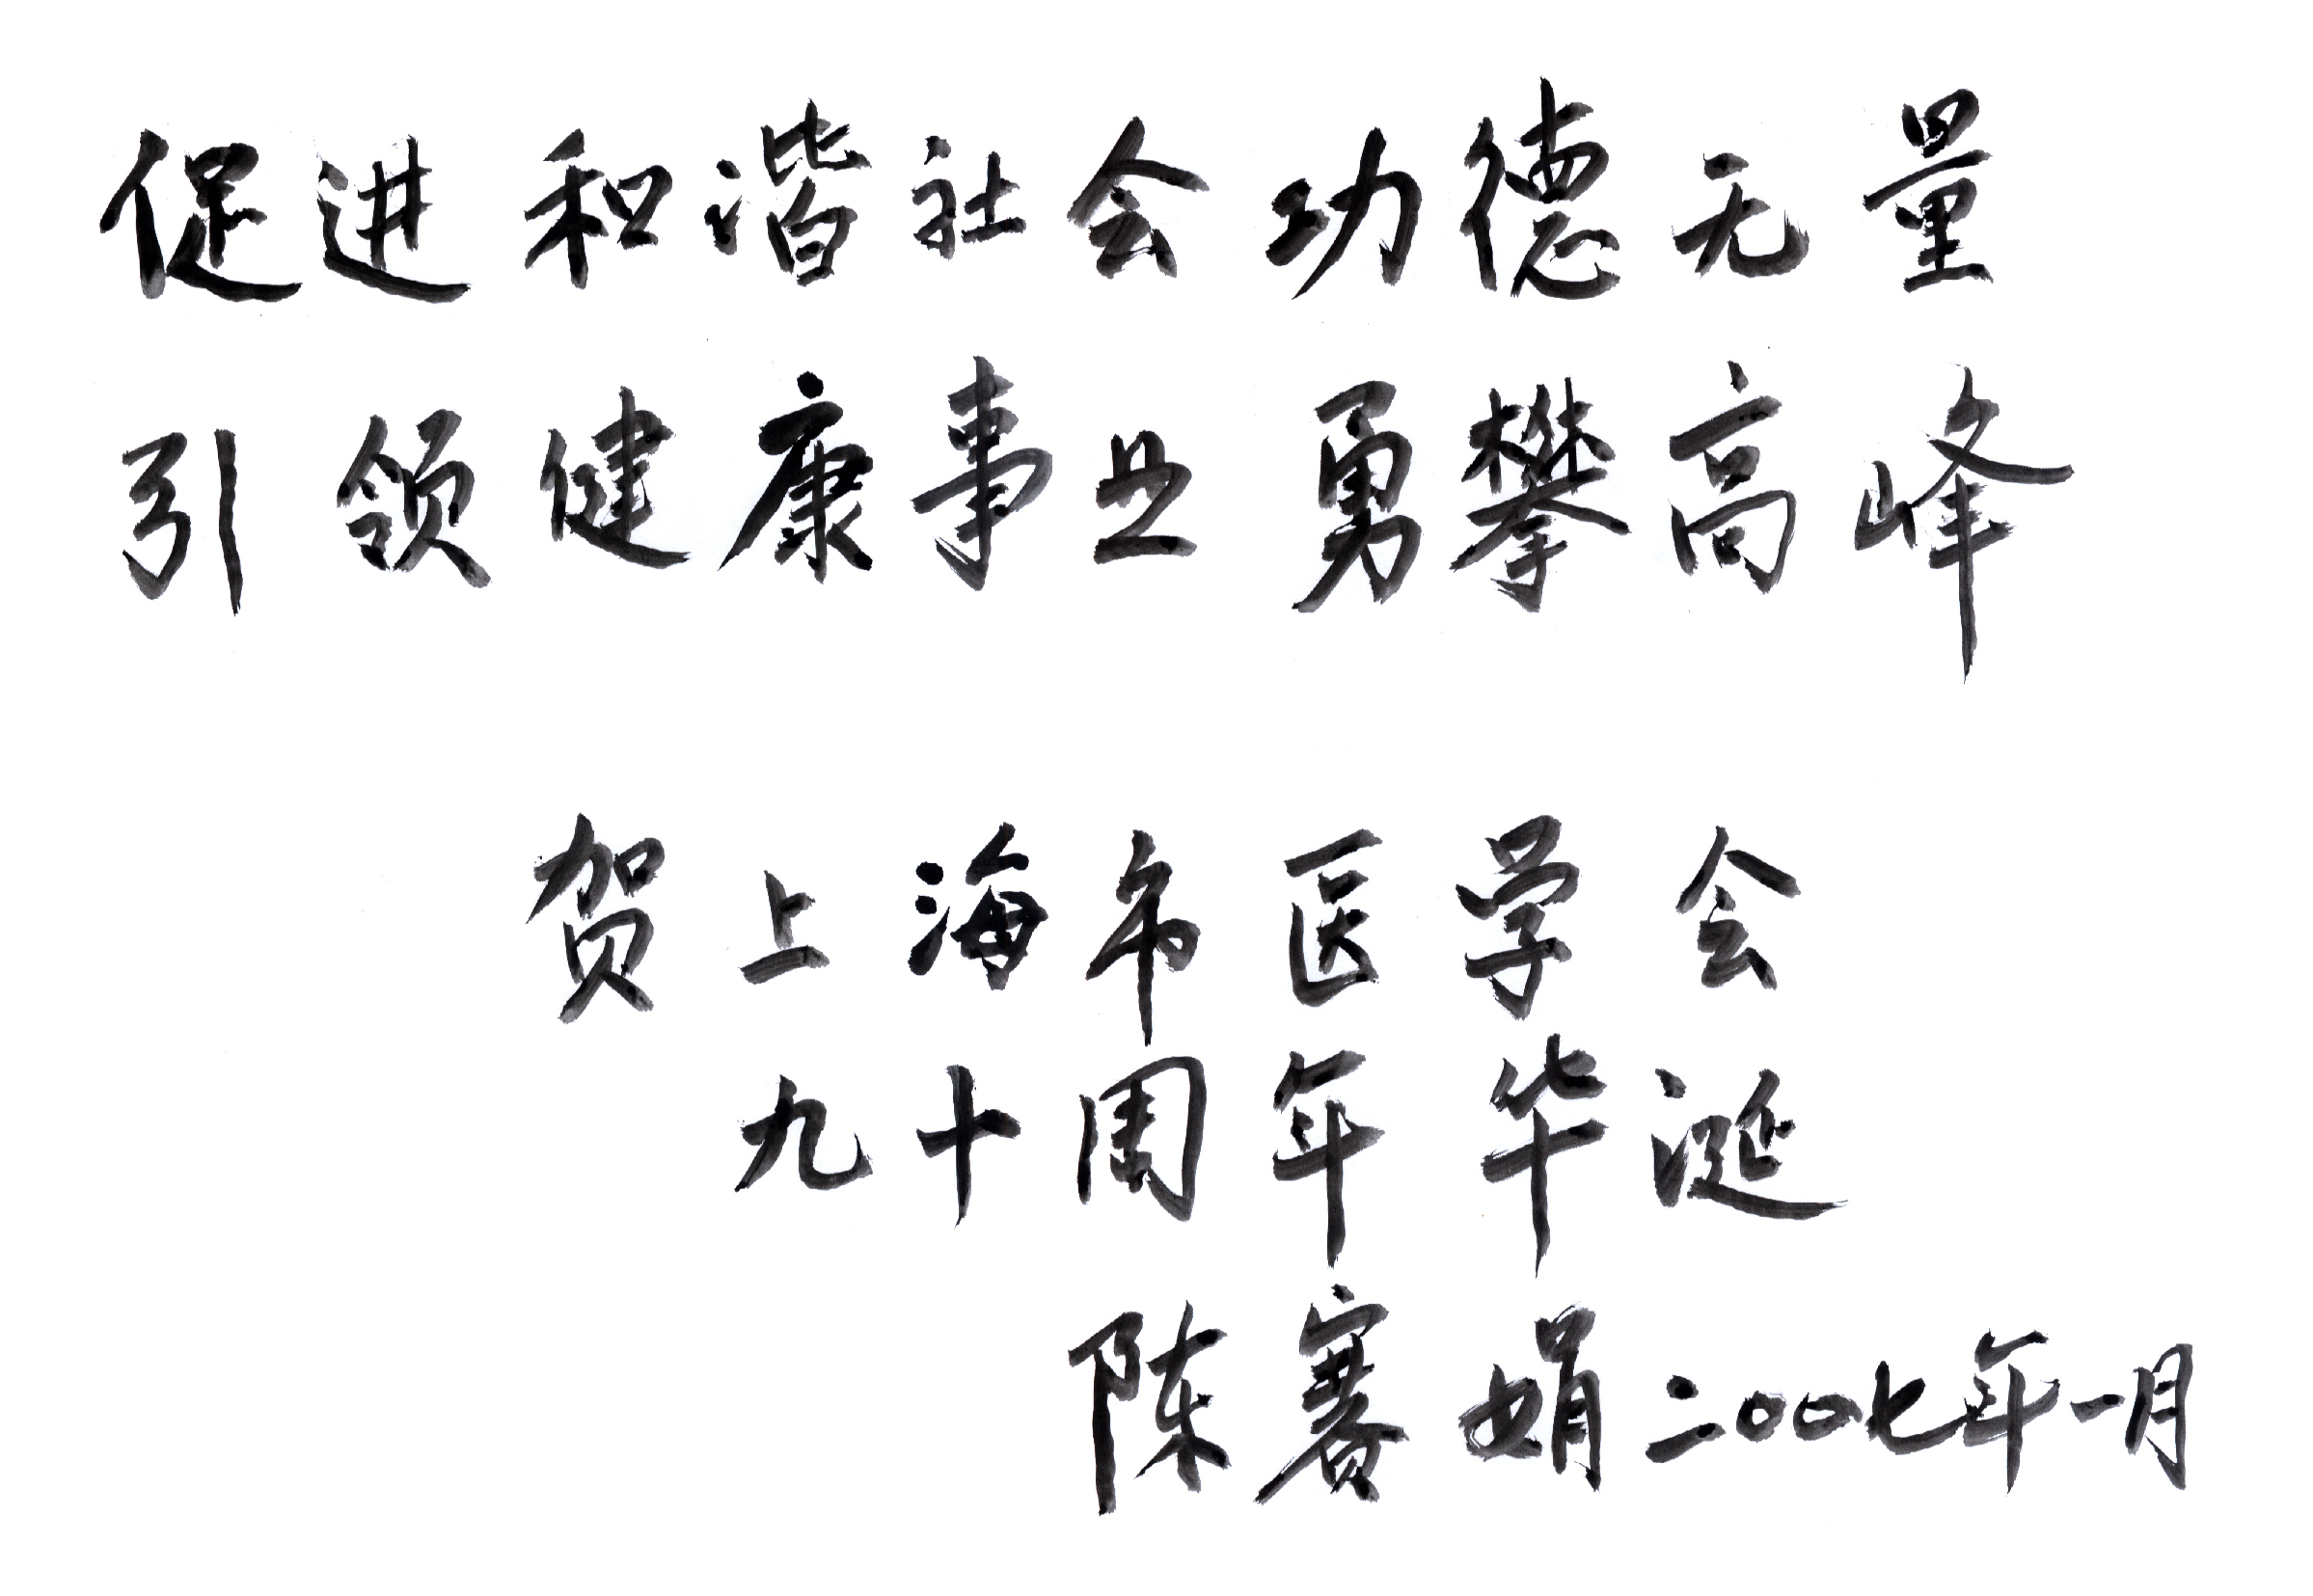 促进和谐社会功德无量
引领健康事业勇攀高峰
贺上海市医学会
九十周年华诞
陈赛娟二〇〇七年一月